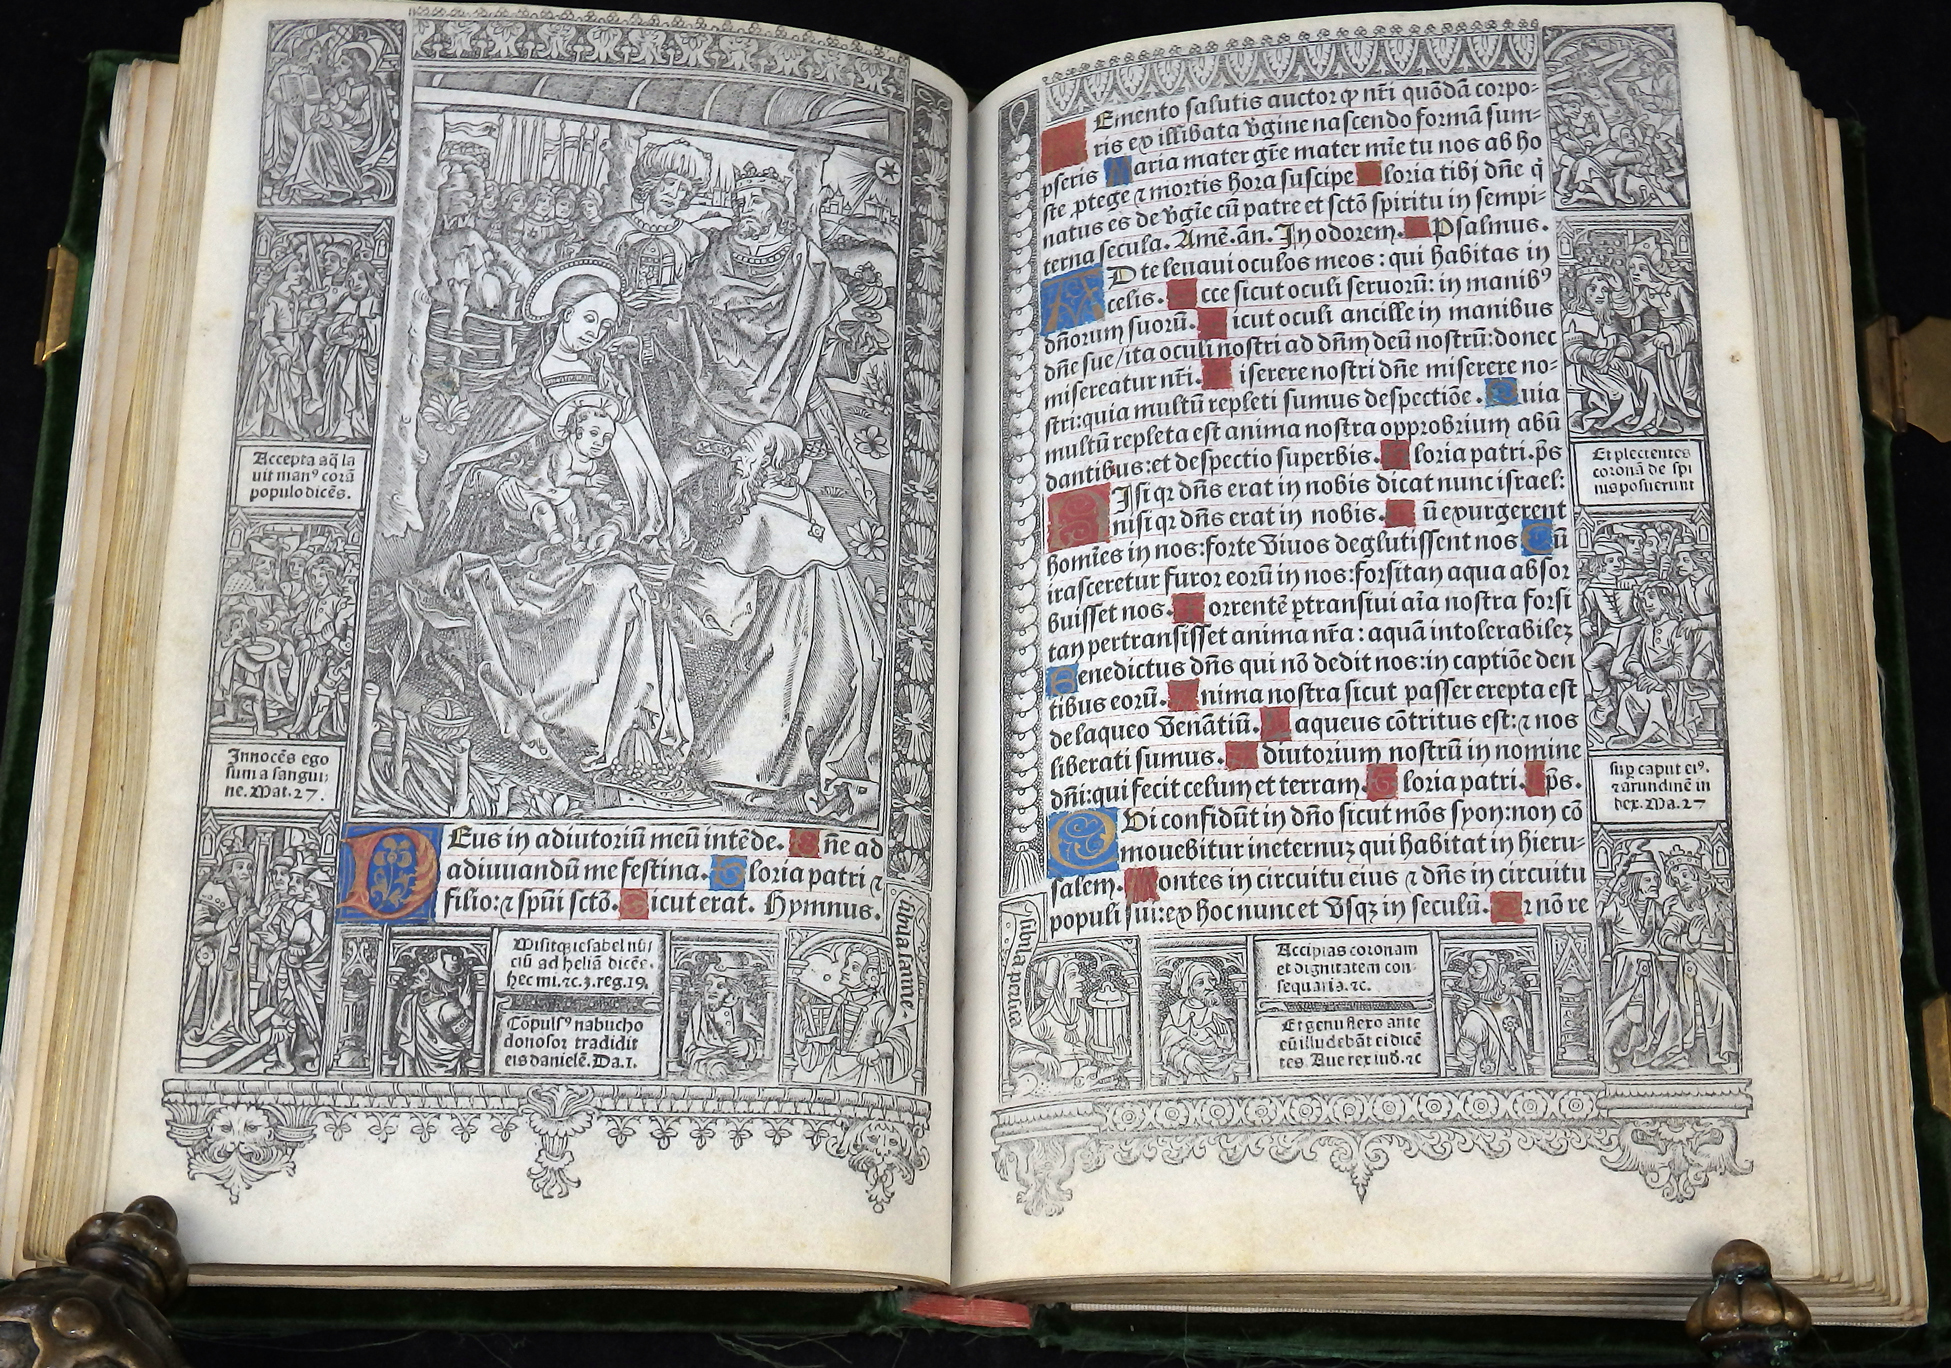 Accepta aq̃ la
uit man⁹ corā
populo dicēs.
Innocēs ego
sum a sangui:
ne. Mat. 27.
Deus in adiutoriū meū intēde. Dñe ad
adiuuandū me festina. Gloria patri ⁊
filio: ⁊ spūi sctō. Sicut erat. Hymnus.
Misitq; iesabel nū;
ciū ad heliā dicēs.
hec mi. ⁊c. 3. reg. 19.
Cōpuls⁹ nabucho
donosor tradidit
eis danielē. Da. 1.
Emento salutis auctor ꝙ nr̄i quōdā corpo-
ris ex illibata v̄gine nascendo formā sum-
pseris Maria mater gr̄e mater mīe tu nos ab ho
ste ꝓtege ⁊ mortis hora suscipe Gloria tibj dñe q̇
natus es de v̄gīe cū patre et sctō spiritu in sempi-
terna secula. Amē. añ. In odorem. Psalmus.
AD te leuaui oculos meos: qui habitas in
celis. Ecce sicut oculi seruorū: in manib⁹
dñorum suorū. Sicut oculi ancille in manibus
dñe sue/ita oculi nostri ad dñm deū nostrū: donec
misereatur nr̄i. Miserere nostri dñe miserere no-
stri: quia multū repleti sumus despectiōe. Quia
multū repleta est anima nostra opprobrium abū
dantibus: et despectio superbis. Gloria patri. p̄s
NIsi qr dñs erat in nobis dicat nunc israel:
nisi qr dñs erat in nobis. Cū exurgerent
homīes in nos: forte viuos deglutissent nos Cū
irasceretur furor eorū in nos: forsitan aqua absor
buisset nos. Torrentē ꝑtransiuit aīa nostra forsi
tan pertransisset anima nr̄a: aquā intolerabilez
Benedictus dñs qui nō dedit nos: in captiōe den
tibus eorū. Anima nostra sicut passer erepta est
de laqueo venātiū. Laqueus cōtritus est: ⁊ nos
liberati sumus. Adiutorium nostrū in nomine
dñi: qui fecit celum et terram. Gloria patri. p̄s.
QVi confidūt in dño sicut mōs syon: non cō
mouebitur ineternuz qui habitat in hieru-
salem. Montes in circuitu eius ⁊ dñs in circuitu
populi sui: ex hoc nunc et vsqz in seculū. Qr nō re
Et plectentes
coronā de spi
nis posuerunt
sup caput ei⁹.
⁊ arundinē in
dex. Ma. 27
Accipias coronam
et dignitatem con-
sequaris. ⁊c.
Et genu flexo ante
eū illudebāt ei dicē
tes. Aue rex iud. ⁊c
sibila persica